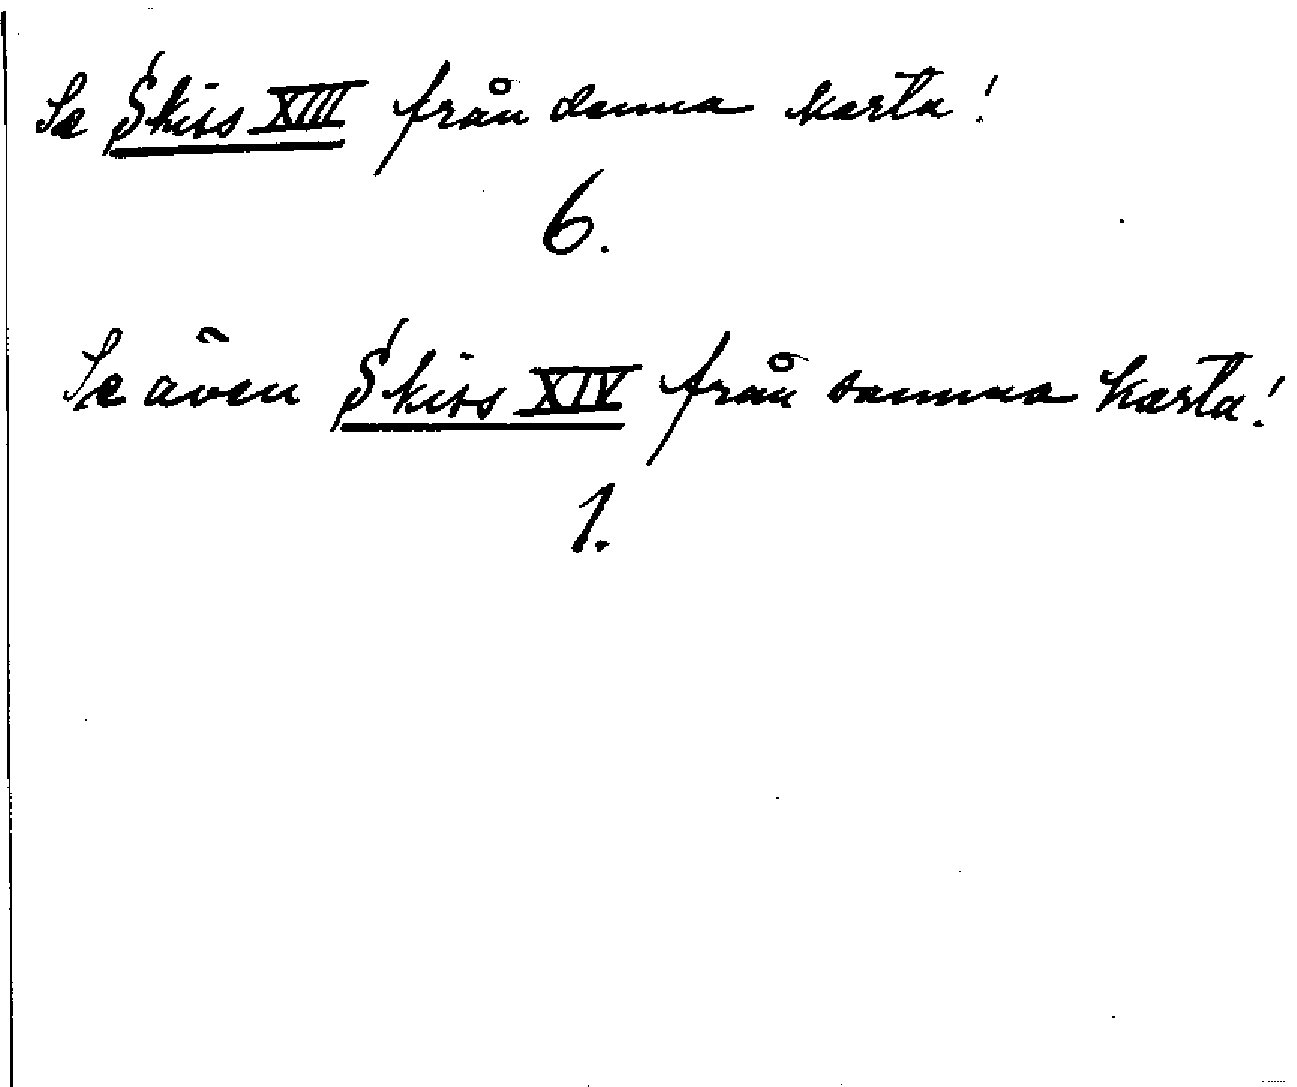 Se Skiss XIII från denna karta!
6.
Se även Skiss XIV från samma karta!
1.